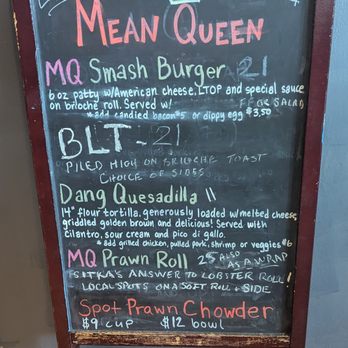 MEAN QUEEN
MQ Smash Burger 21
6 oz patty w/American cheese, LTOP and special sauce
on brioche roll. Served w/ FF OR SALAD
*add candied bacon $5 or dippy egg $3.50
BLT - 21
PILED HIGH ON BRIOCHE TOAST
CHOICE OF SIDES
Dang Quesadilla 11
14" flour tortilla, generously loaded w/melted cheese,
griddled golden brown and delicious! Served with
cilantro, sour cream and pico di gallo.
*add grilled chicken, pulled pork, shrimp or veggies $6
MQ Prawn Roll 25 ALSO AS A WRAP
SITKA'S ANSWER TO LOBSTER ROLL!
LOCAL SPOTS ON A SOFT ROLL + SIDE
Spot Prawn Chowder
$9 cup $12 bowl